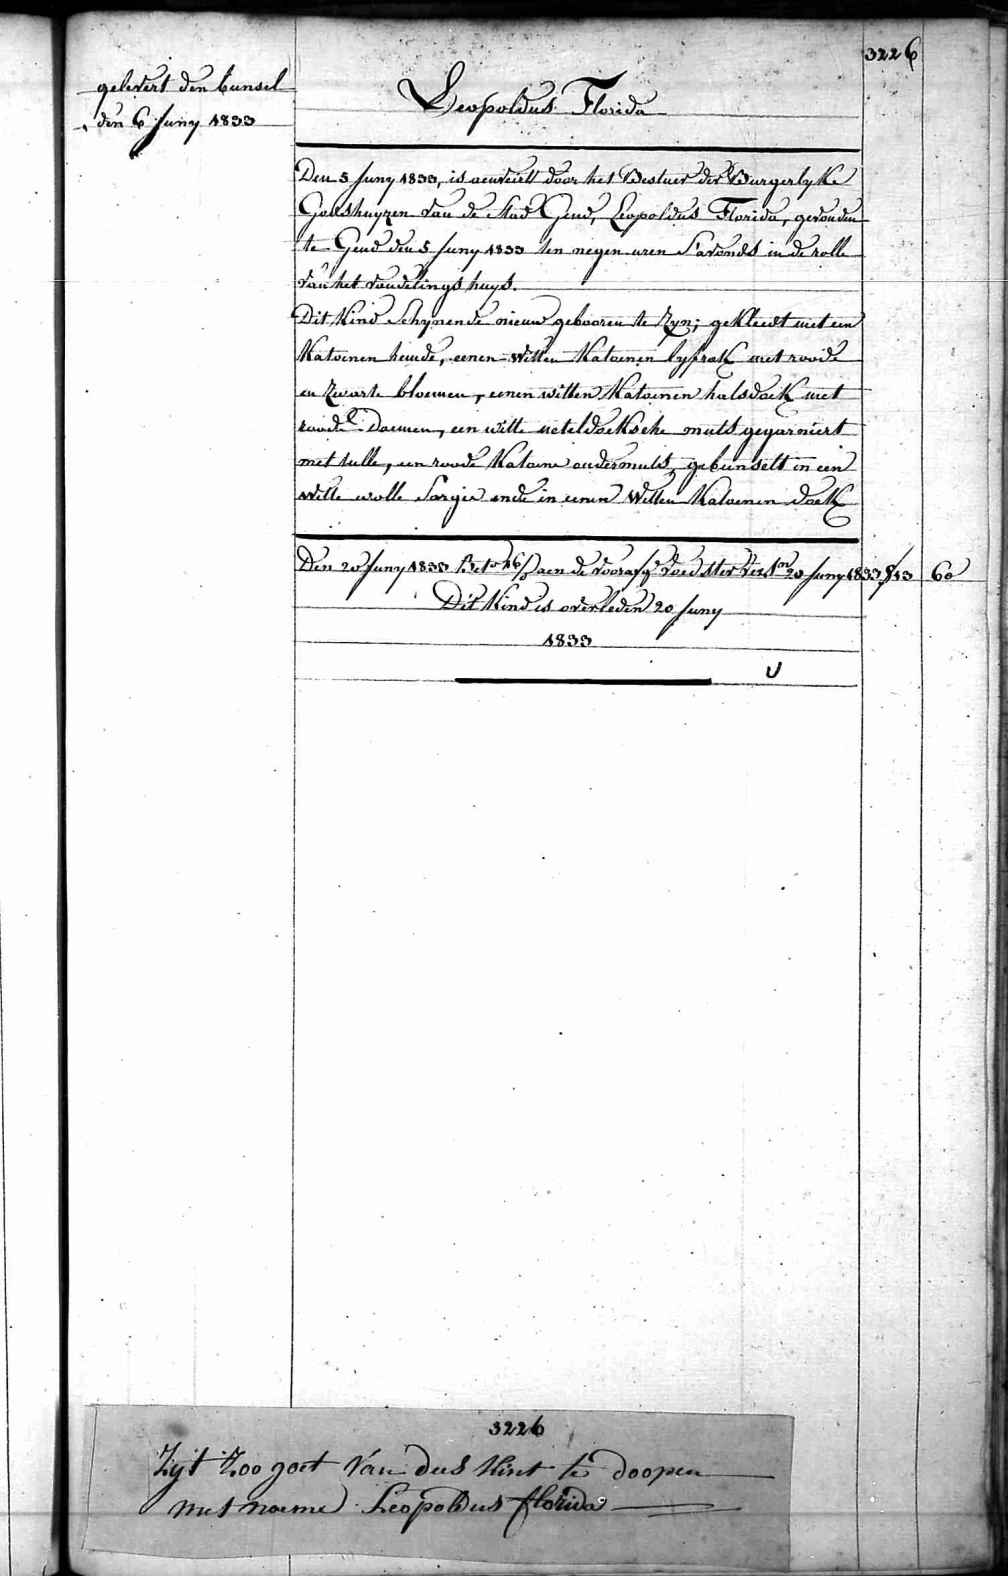 3226
gelevert den bunsel
den 6 Juny 1833
Leopoldus Florida
Den 5 Juny 1833, is aenveirt door het Bestuer der Burgerlyke
Godshuyzen van de Stad Gend, Leopoldus Florida, gevonden
te Gend den 5 Juny 1833 ten negen uren S'avonds in de rolle
van het vondelings huys.
Dit Kind Schynende nieuw gebooren te Zyn; gekleedt met een
Katoenen hemde, eenen Witten Katoenen lyfrok met roode
en Zwarte bloemen, eenen witten Katoenen halsdoek met
roode bloemen, een witte neteldoeksche muts gegarniert
met tulle, een roode Katoene ondermuts, gebunselt in een
Witte wolle Sargie ende in eenen Witten Katoenen doek
Den 20 Juny 1833 aen de voorafg.e voedster 20 Juny 1833 13 60
Dit Kind is overleden 20 Juny
1833
3226
Zijt Zoo goet van dees Kint te doopen
met naeme Leopoldus florida